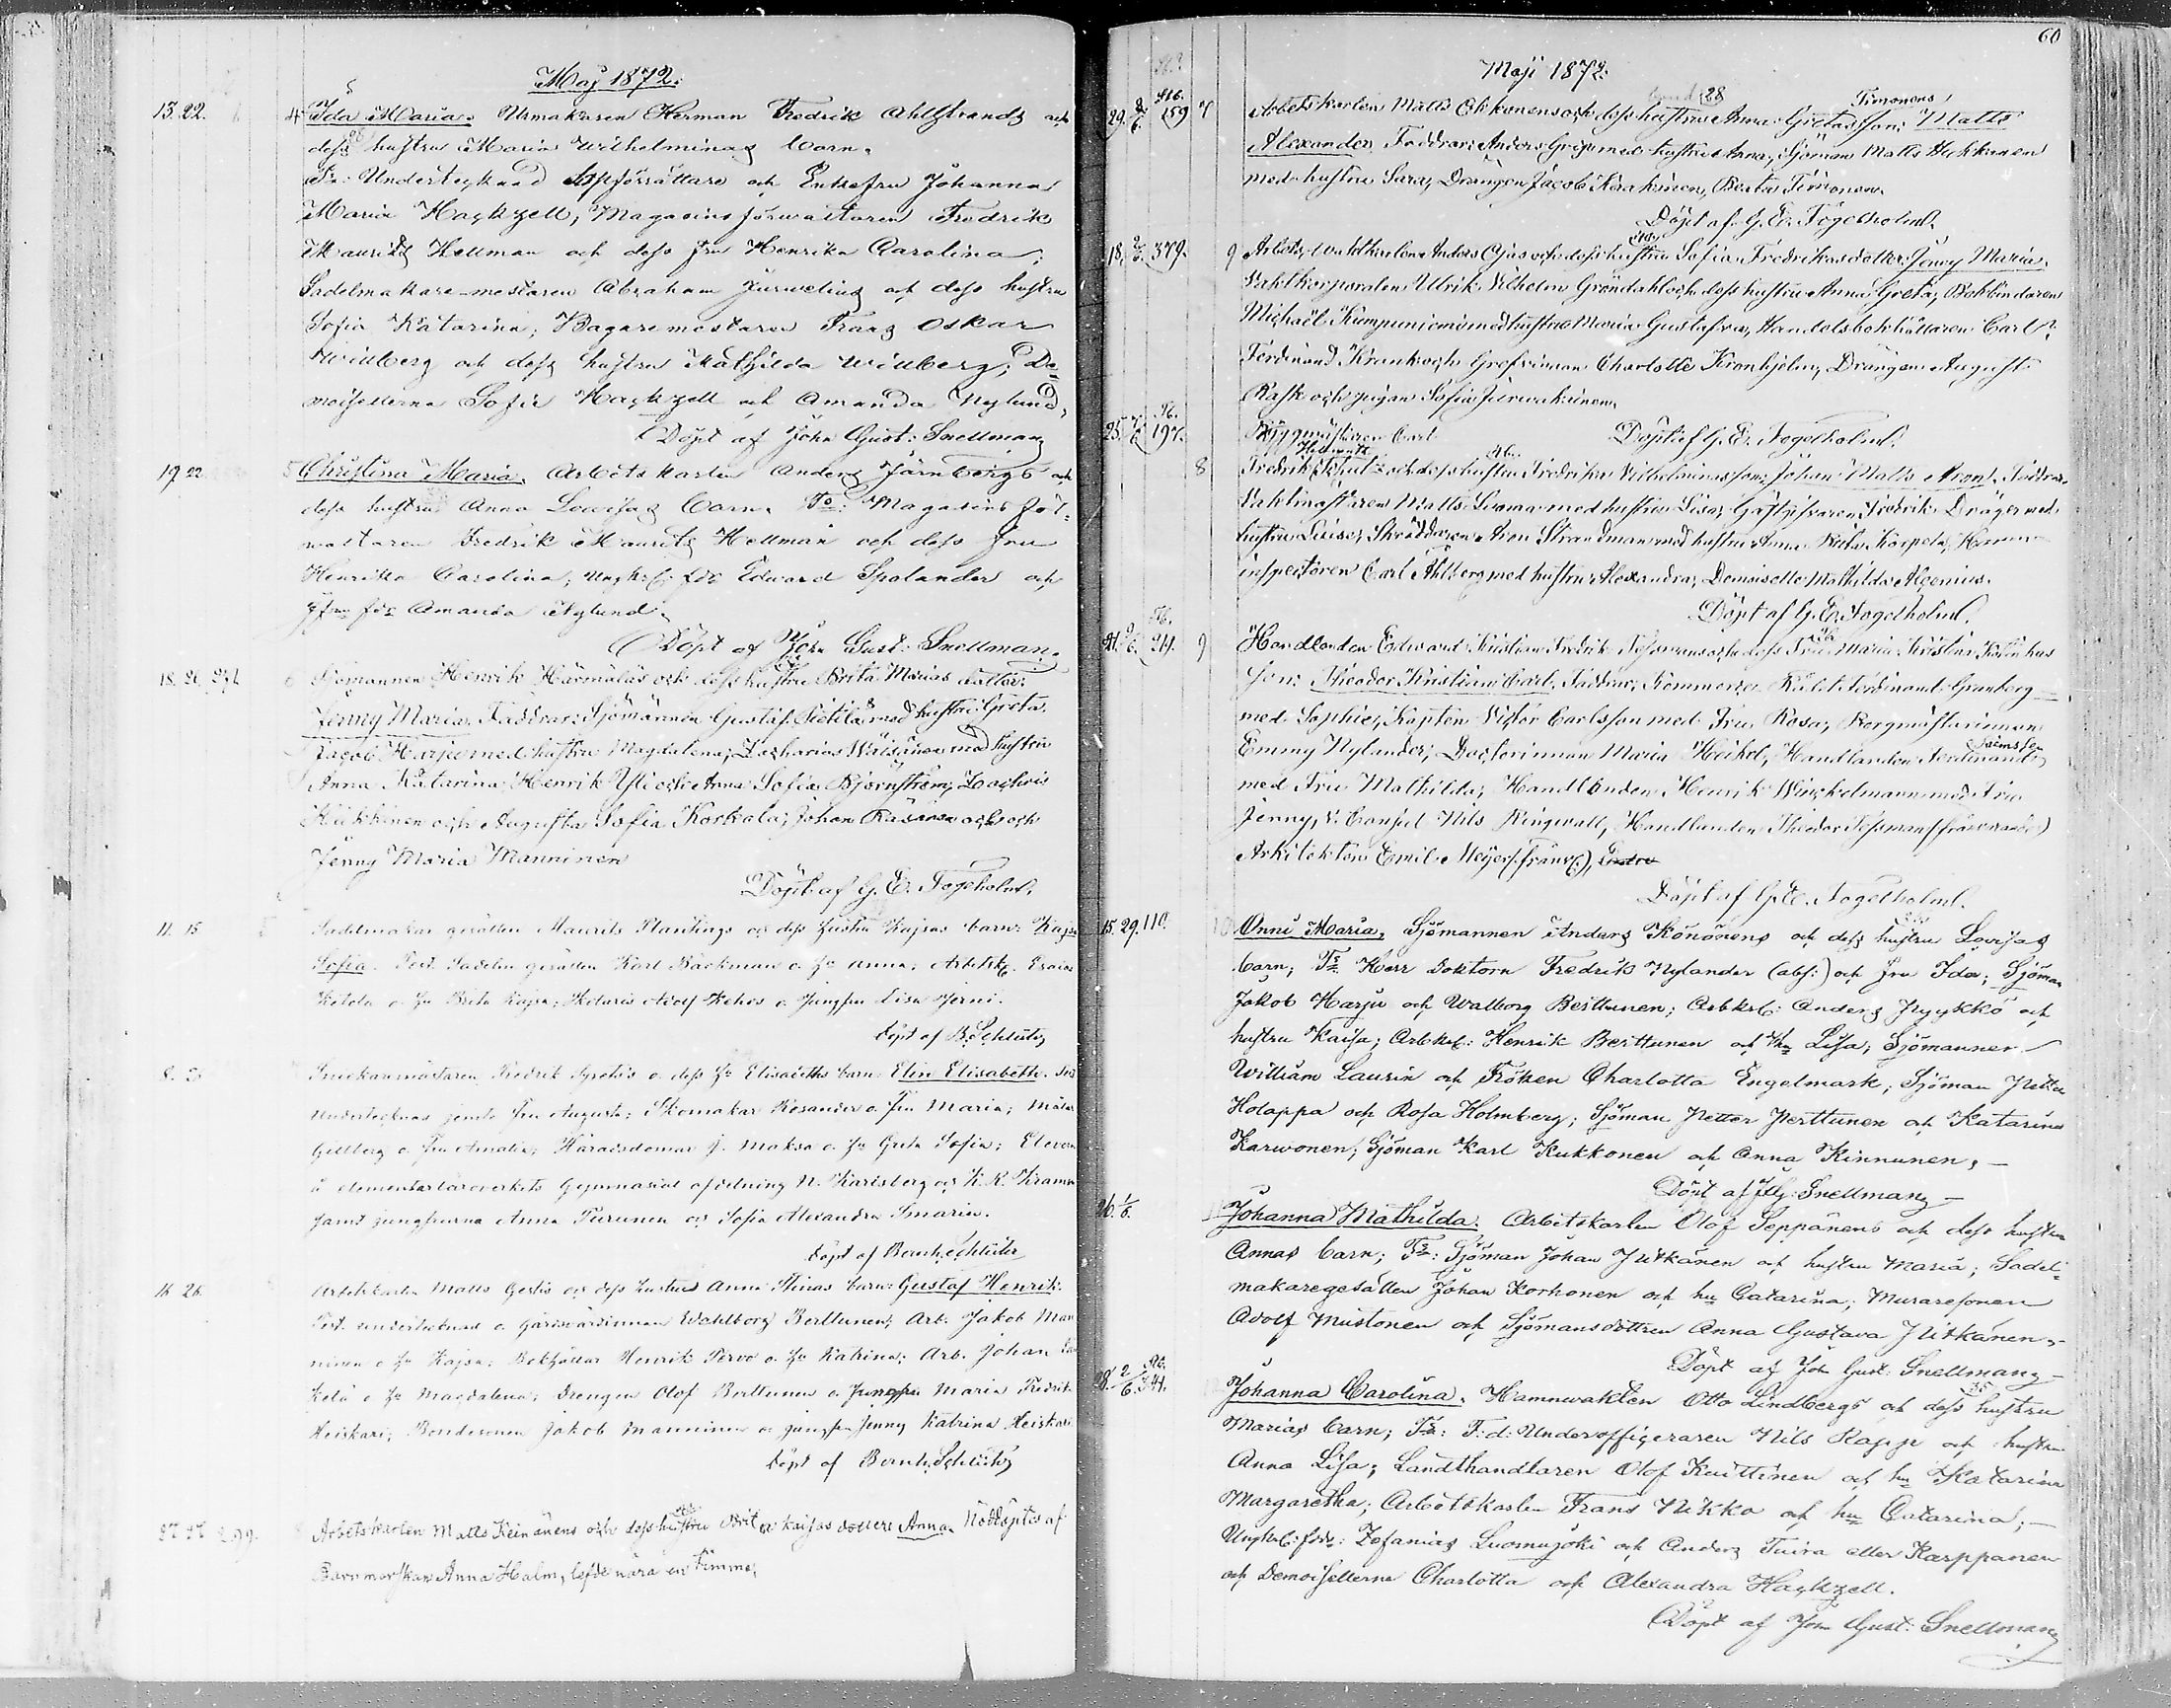 Maj 1872.
13. 22. 4 Ida Maria. Urmakaren Herman Fredrik Ahlstrands och
dess hustru Maria Wilhelminas barn.
Fr: Undertecknad dopförrättare och Enkefru Johanna
Maria Hagkzell, Magasins förwaltaren Fredrik
Maurits Hellman och dess fru Henrika Carolina;
Sadelmakare-mestaren Abraham Jürwelius och dess hustru
Sofia Katarina; Bagaremestaren Frans Oskar
Widberg och dess hustru Mathilda Widberg; De-
moisellerna Sofie Hagkzell och Amanda Nylund,
Döpt af John Gust: Snellman
19. 22. 5 Christina Maria. Arbetskarlen Anders Järnbergs och
dess hustrus Anna Lovisas barn. Fr: Magasins för-
waltaren Fredrik Maurits Hellman och dess fru
Henrika Carolina; Edward Spolander och
Amanda Nylund.
Döpt af John Gust: Snellman.
18. 26. Sjömannen Henrik Härmäläs och dess hustru Brita Marias dotter:
Jenny Maria. Faddrar: Sjömannen Gustaf Pietilä med hustru Greta,
Jacob Harju med hustru Magdalena; Zacharias Wäisänen med hustru
Anna Katarina; Henrik Yli och Anna Sofia Björnström, Zachris
Heikkinen och Augusta Sofia Koskela; Johan Räsänen och
Jenny Maria Manninen
Döpt af G. E. Fogelholm.
11. 15 Sadelmakar gesällen Maurits Plantings och dess hustru Kajsas barn: Kajsa
Sofia. Test. Sadelm. gesällen Karl Bäckman o. Hu Anna; Arbetsk. Esaias
o. Hu Brita Kajsa; Adolf o. Jungfru Lisa
Döpt af B. Schlüter
8. Snickarmästaren Fredrik o. dess Hu Elisabeths barn Elin Elisabeth.
Undertecknad jemte fru Augusta; Skomakar Rosander o. fru Maria; Målar
Gellberg o. fru Amalia; Häradsdomar J. Maksa o. Hu Greta Sofia; Eleven
å elementarläroverkets Gymnasial afdelning N. Karlsberg och K. R. Kramer
samt jungfrurna Anna Turunen och Sofia Alexandra Smarin.
Döpt af Bernh. Schlüter
16 26. Arbetskarlen Matts och dess hustrus Anna Stinas barn: Gustaf Henrik.
Test. undertecknad o. gårdvärdinnan Wahlborg Berttunen; Arb. Jakob Man
ninen o. Hu Kajsa; Bokhållar Henrik Tervo o. Hu Katrina; Arb. Johan
kelä o. Hu Magdalena; drengen Olof Berttunen o. Jungfru Maria Fredrik
Heiskari; Bondesonen Jakob Manninen o. jungfru Jenny Katrina Heiskari
Döpt af Bernh. Schlüter
27 27 299. Arbetskarlen Matts Keinänens och dess hustru Brita Kaisas dotter Anna. Nöddöptes af
Barnmorskan Anna Holm, lefde nära en timme.
60
Maji 1872.
29. 2/6. 159 7 Arbetskarlen Matts och dess hustrus Anna Gretas son: Matts
28 Timonens
Alexander. Faddrar: Anders med hustru Anna, Sjöman Matts Heikkinen
med hustru Sara, Drängen Jacob Keräkinen, Beata Timonen.
Döpt af G. E. Fogelholm.
18. 379. 9 Arbets, waktkarlen Anders Ojas och dess hustru Sofia Fredrikas dotter Jenny Maria.
Waktkorporalen Ulrik Wilhelm Gröndahl och dess hustru Anna Greta, Bokbindaren
Michaël Kumpuniemi med hustru Maria Gustafva, Handelsbokhållaren Carl
Ferdinand Krank och Grefvinnan Charlotte Kronhjelm, Drängen August
Rask och pigan Sofia Jürwakainen.
Döpt af G. E. Fogelholm.
25. 197. 8 Byggmästaren Carl
Fredrik Schultz och dess hustru Fredrika Wilhelminas son: Johan Matts Aron. Faddrar:
Waktmästaren Matts Luoma med hustru Lisa, Gästgifvaren Fredrik Dräger med
hustru Lovisa, Skräddaren Aron Strandman med hustru Anna Brita Karpela, Hamn-
inspektoren Carl Ahlberg med hustru Alexandra, Demoiselle Mathilda Alcenius.
Döpt af G. E. Fogelholm.
21. 9/6. 211. 9 Handlanden Edward Kristian Fredrik Tessmans och dess Fru Maria Kristina Katarinas
son: Theodor Kristian Carl. Faddrar: Kommerse Rådet Ferdinand Granberg
med Sophie, Kapten Victor Carlsson med Fru Rosa, Borgmästarinnan
Emmy Nylander, Doctorinnan Maria Heikel, Handlanden Ferdinand
med Fru Mathilda, Handlanden Henrik Winckelmann med Fru
Jenny, V. Consul Nils Ringwall, Handlanden Theodor Tessman (frånvarande)
Arkitekten Emil Meyer (frånv:),
Döpt af G. E. Fogelholm.
15. 29. 110. 10 Anni Maria, Sjömannen Anders Könönens och dess hustru Lovisas
barn; Fr: Herr Doktorn Fredrik Nylander (abs:) och fru Ida; Sjöman
Jakob Harju och Walborg Berttunen; Arbkrl: Anders Pyykkö och
hustru Kaisa; Arbkrl: Henrik Berttunen och Hu Lisa; Sjömannen
William Laurin och Fröken Charlotta Engelmark; Sjöman Petter
Holappa och Rosa Holmberg; Sjöman Petter Perttunen och Katarina
Karwonen; Sjöman Karl Kukkonen och Anna Kinnunen,
Döpt af J. G: Snellman
26. 1/6. Johanna Mathilda. Arbetskarlen Olof Seppänens och dess hustru
Annas barn; Fr: Sjöman Johan Pitkänen och hustru Maria; Sadel-
makaregesällen Johan Korhonen och hu Catarina; Muraresonen
Adolf Mustonen och Sjömansdottren Anna Gustava Pitkänen,
Döpt af Joh Gust: Snellman
28. 2/6. 341. Johanna Carolina. Hamnwakten Otto Lindbergs och dess hustru
35
Marias barn; Fr: F:d: Underofficeraren Nils Rappe och hustru
Anna Lisa; Landthandlaren Olof Kuittinen och hu Katarina
Margaretha; Arbetskarlen Frans Nikko och hu Catarina;
Zefanias Luomajoki och Anders Tuira eller Karppanen
och Demoisellerna Charlotta och Alexandra Hagkzell.
Döpt af Joh Gust: Snellman